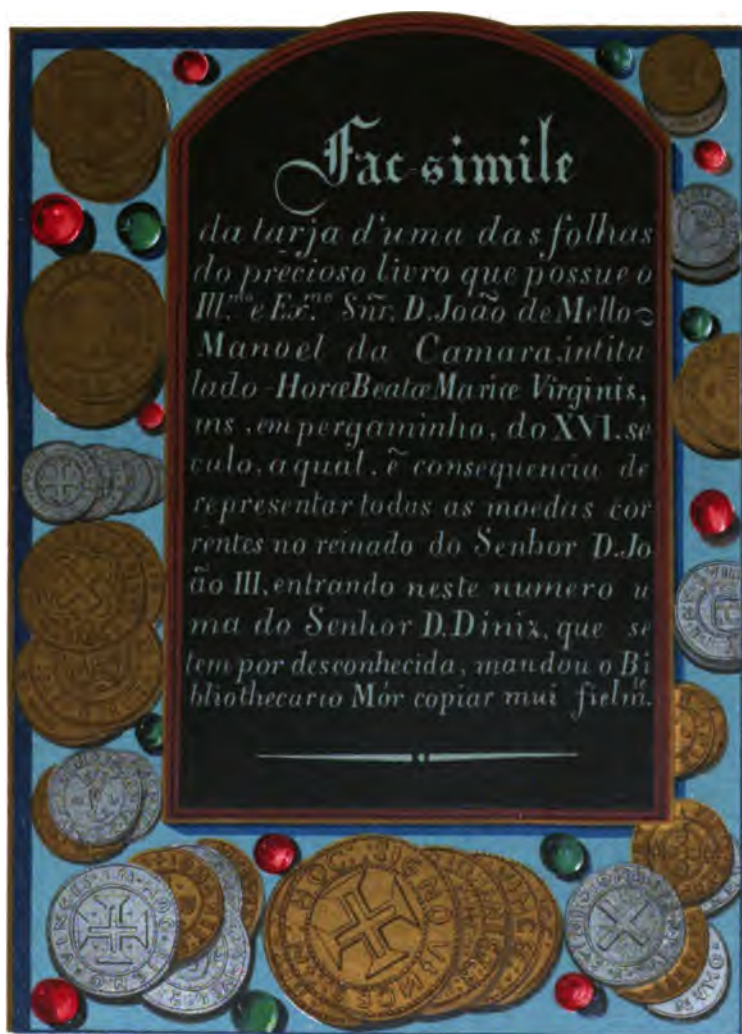 Fac-simile
da tarja d'uma das folhas
do precioso livro que possue o
Ill.mo e Ex.mo Snr. D. João de Mello
Manoel da Camara, intitu
lado - Horæ Beatæ Mariæ Virginis,
ms. em pergaminho, do XVI. se
culo, a qual, ẽ consequencia de
representar todas as moedas cor
rentes no reinado do Senhor D. Jo
ão III, entrando neste numero u
ma do Senhor D. Diniz, que se
tem por desconhecida, mandou o Bi
bliothecario Mór copiar mui fielm.te
HOC SIGNO VINCE